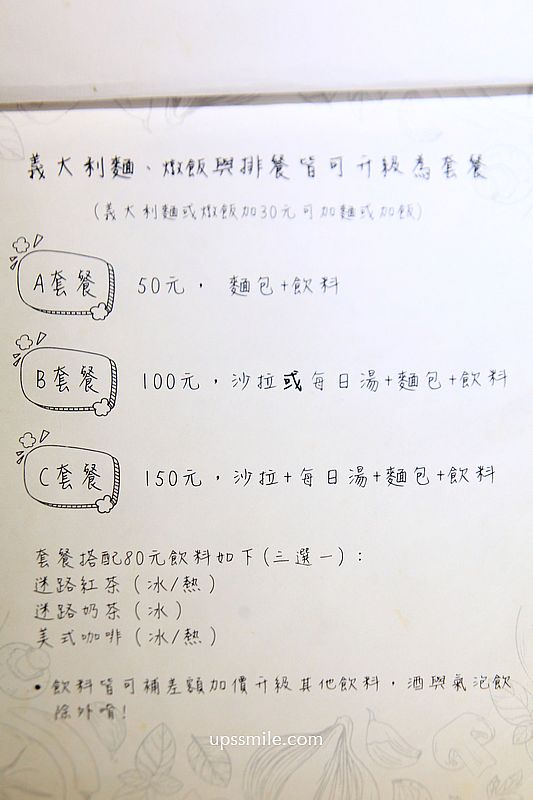 義大利麵、燉飯與排餐皆可升級為套餐
(義大利麵或燉飯加30元可加麵或加飯)
A套餐 50元， 麵包+飲料
B套餐 100元，沙拉或每日湯+麵包+飲料
C套餐 150元，沙拉+每日湯+麵包+飲料
套餐搭配80元飲料如下(三選一)：
迷路紅茶(冰/熱)
迷路奶茶(冰)
美式咖啡(冰/熱)
• 飲料皆可補差額加價升級其他飲料，酒與氣泡飲
除外唷!
upssmile.com